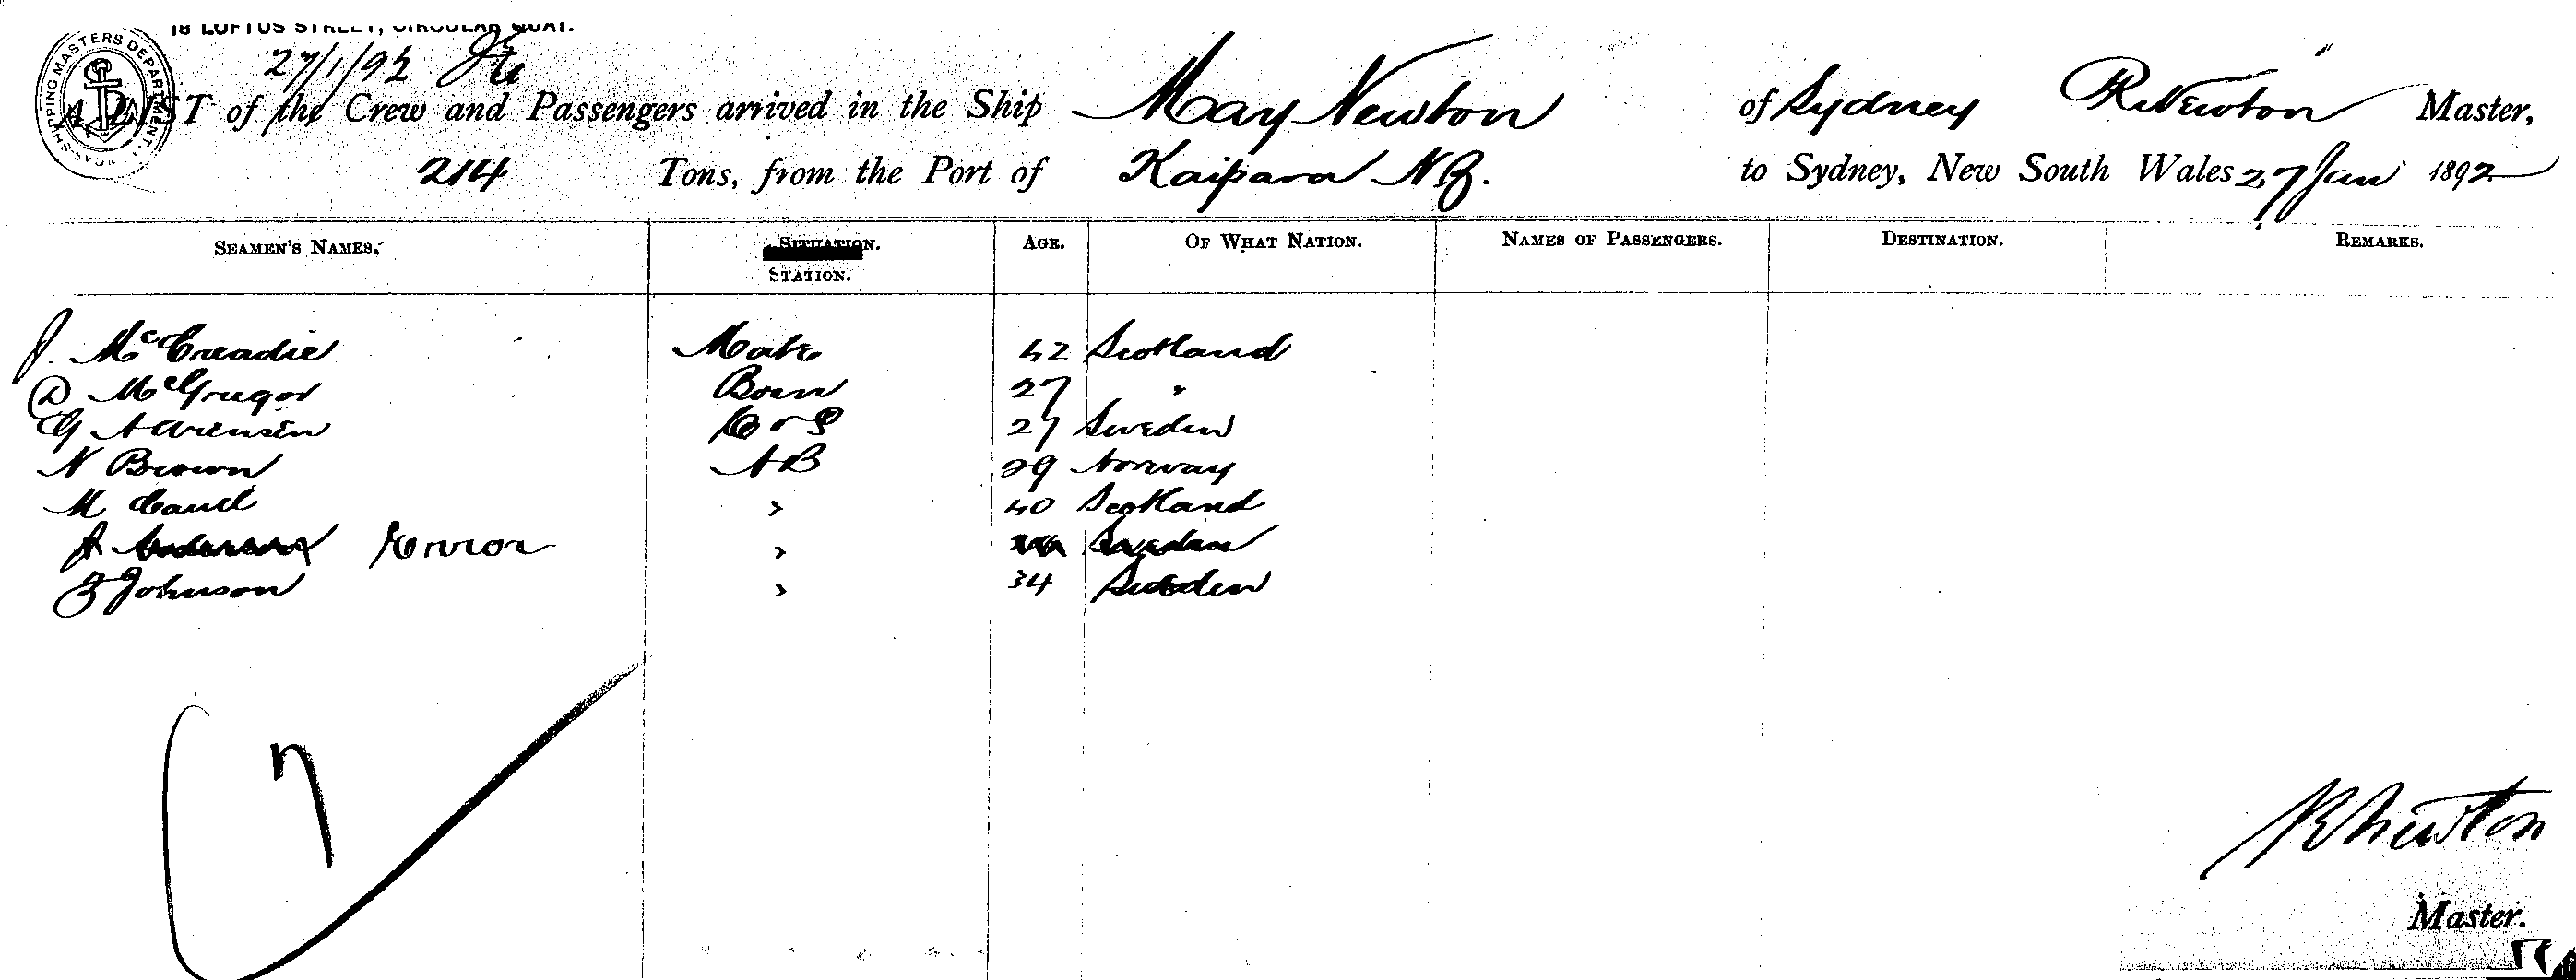 18 LOFTUS STREET, CIRCULAR QUAY.
SHIPPING MASTERS DEPARTMENT
27/1/92
A LIST of the Crew and Passengers arrived in the Ship May Newton of Sydney R Newton Master,
214 Tons, from the Port of Kaipara N.Z. to Sydney, New South Wales 27 Jan 1892
SEAMEN'S NAMES, SITUATION. STATION. AGE. OF WHAT NATION. NAMES OF PASSENGERS. DESTINATION. REMARKS.
J. McCreadie Mate 42 Scotland
D McGregor Bosn 27 "
G 27 Sweden
N Brown AB 29 Norway
M 40 Scotland
Error Sweden
Johnson 34 Sweden
7
R Newton
Master.